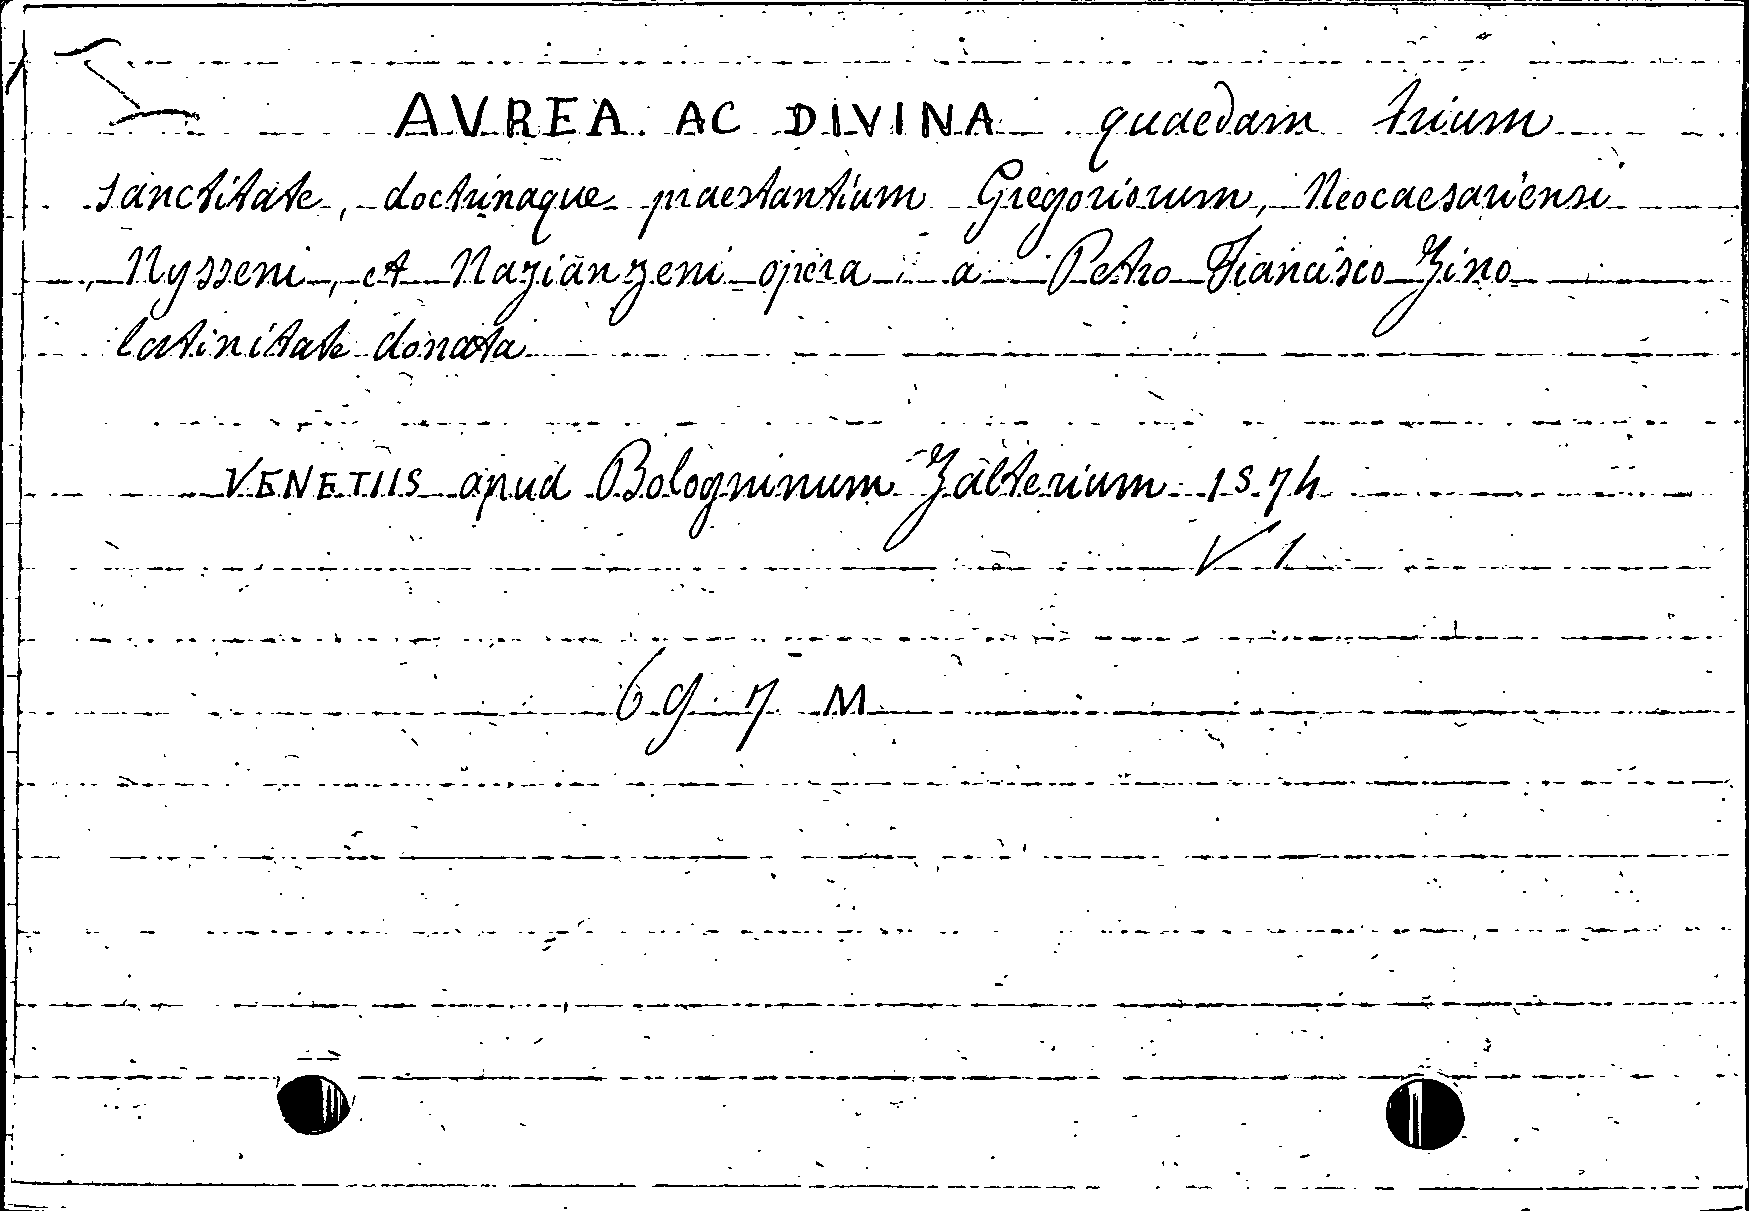 AVREA AC DIVINA quaedam trium
sanctitate, doctrinaque praestantium Gregoriorum, Neocaesariensi
, Nysseni, et Nazianzeni opera a Petro Francisco Zino
latinitate donata
VENETIIS apud Bologninum Zalterium 1574
V 1
697 M